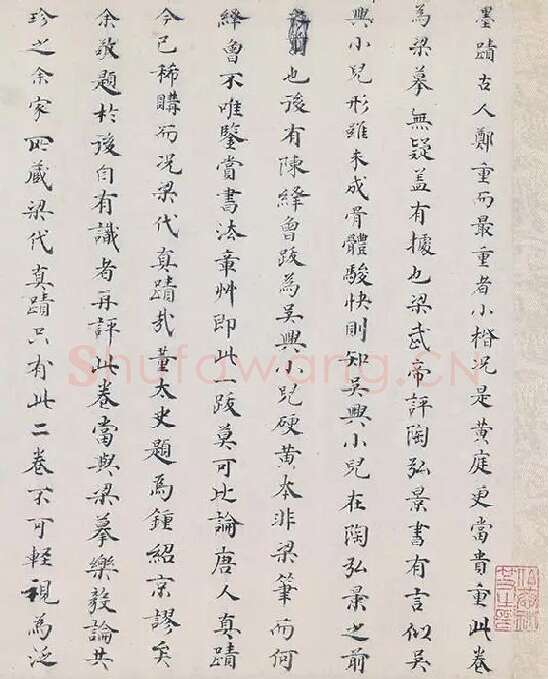 墨蹟古人鄭重而最重者小楷况是黃庭更當貴重此卷
為梁摹無疑盖有據也梁武帝評陶弘景書有言似吳
興小兒形雖未成骨體駿快則知吳興小兒在陶弘景之前
也後有陳繹曾跋為吳興小兒硬黃本非梁筆而何
繹曾不唯鑒賞書法章艸即此一跋莫可比論唐人真蹟
今已稀購而况梁代真蹟哉董太史題為鍾紹京謬矣
余敬題於後自有識者再評此卷當與梁摹樂毅論共
珍之余家所藏梁代真蹟只有此二卷不可輕視為泛
Shufawang.CN